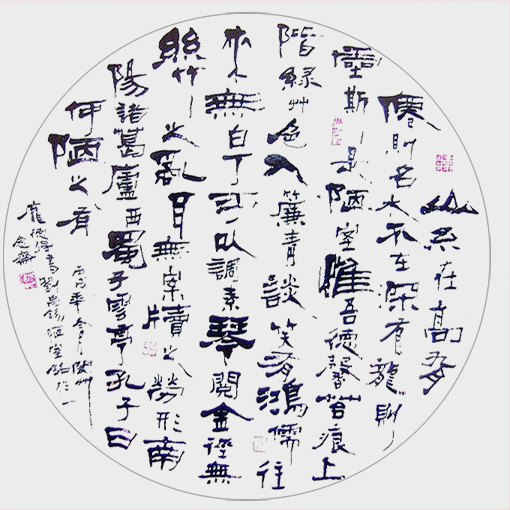 山不在高有
僊則名水不在深有龍則
靈斯是陋室惟吾德馨苔痕上
階綠艸色入簾青談笑有鴻儒往
來無白丁可以調素琴閱金徑無
絲竹之亂耳無案牘之勞形南
陽諸葛廬西蜀子雲亭孔子曰
何陋之有
書劉禹錫陋室銘於